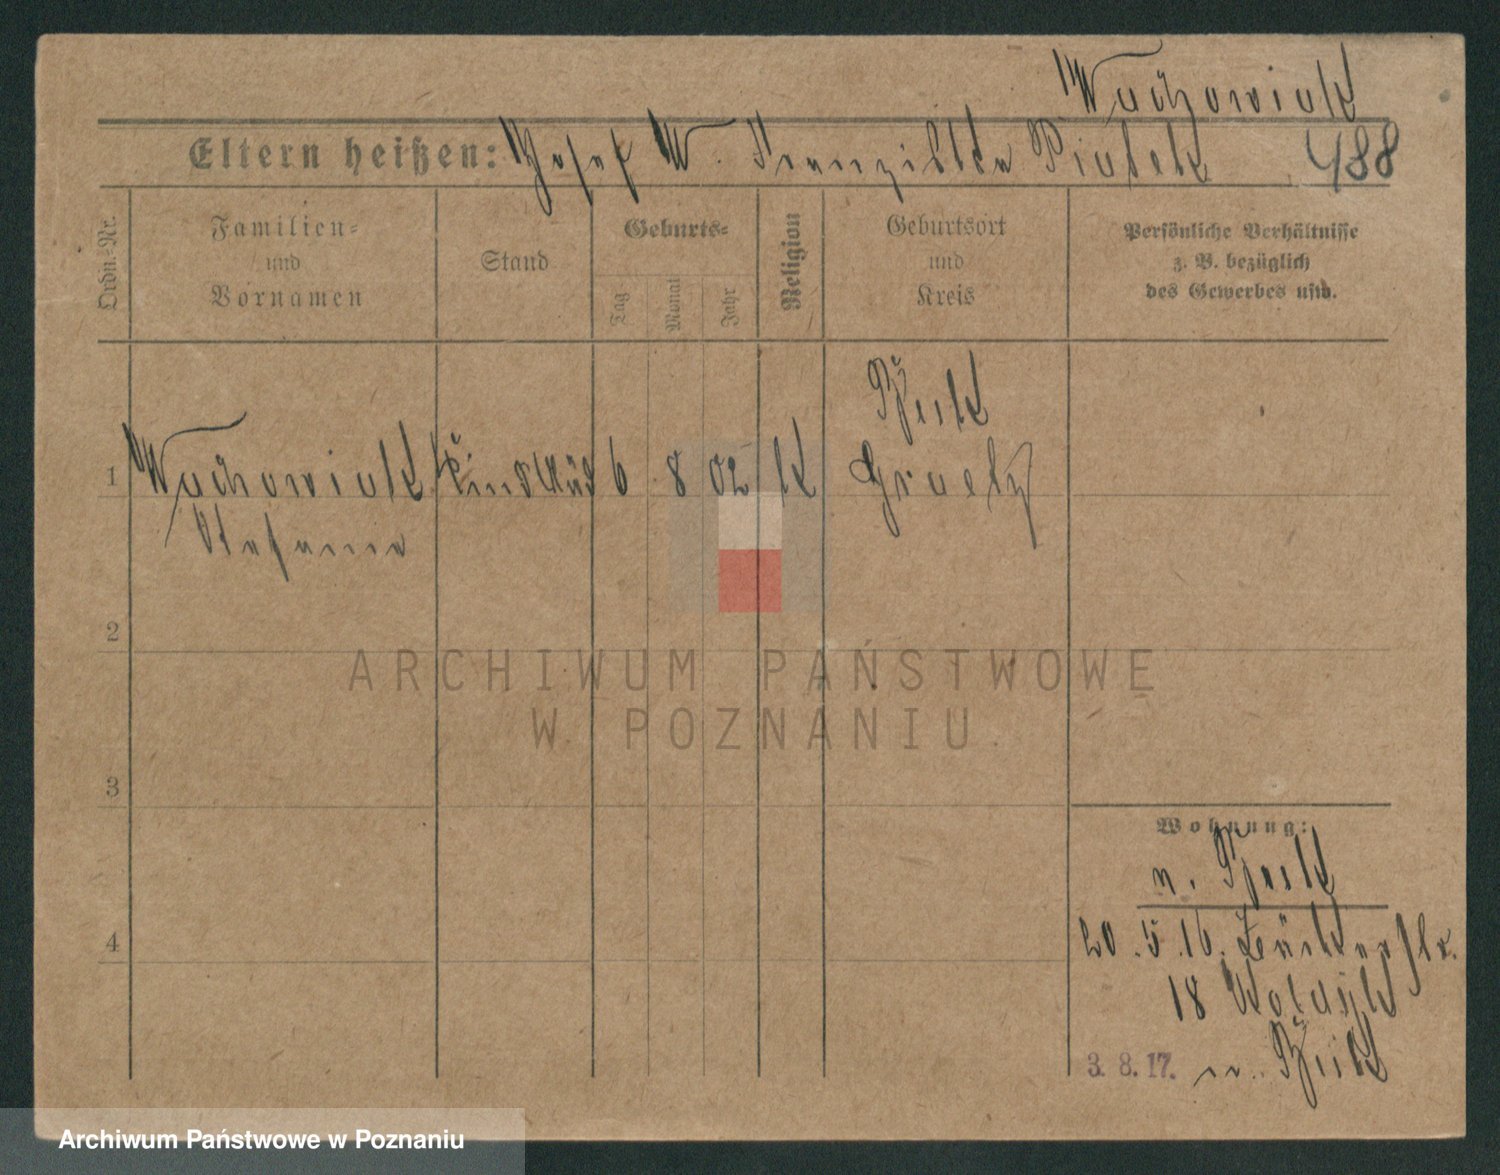 Wachowiak
Eltern heißen: Josef W. Franziska Piasek 488
Ordn.-Nr.
Familien-
und
Vornamen
Stand
Geburts-
Tag
Monat
Jahr
Religion
Geburtsort
und
Kreis
Persönliche Verhältnisse
z. B. bezüglich
des Gewerbes usw.
Graetz
1 Wachowiak 6 8 02 K
Stefania
2
ARCHIWUM PAŃSTWOWE
W POZNANIU
3
Wohnung:
n.
4
20.5.16. Bäckerstr.
18
3. 8. 17. n.
Archiwum Państwowe w Poznaniu